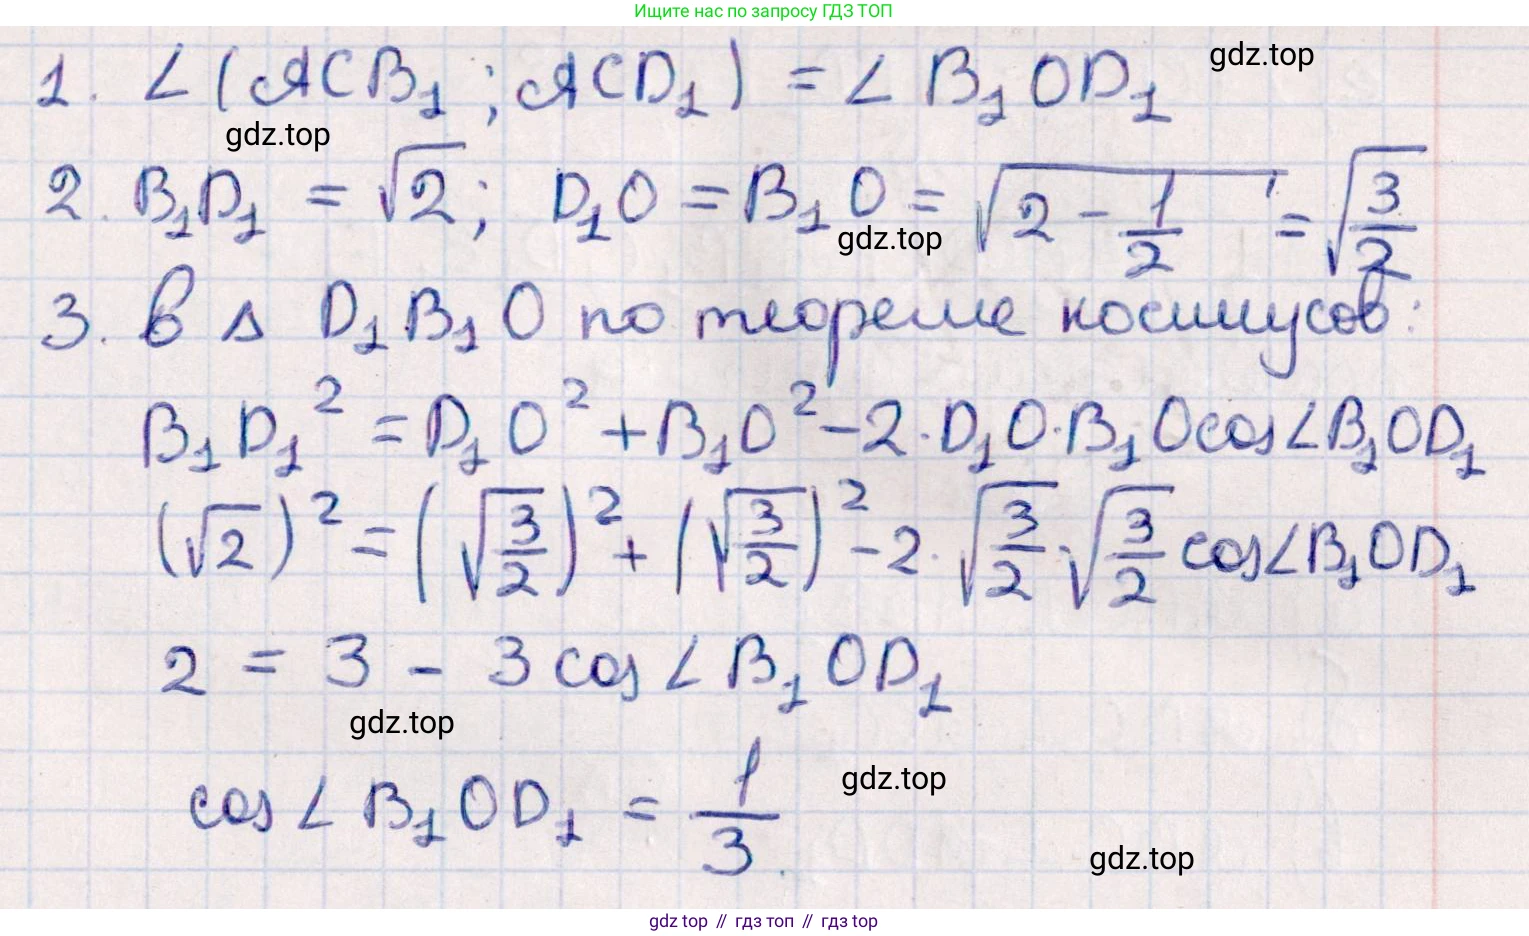 Ищите нас по запросу ГДЗ ТОП
1. ∠(ACB₁; ACD₁) = ∠B₁OD₁
gdz.top
gdz.top
2. B₁D₁ = √2; D₁O = B₁O = √(2 - 1/2) = √(3/2)
gdz.top
3. в Δ D₁B₁O по теореме косинусов:
B₁D₁² = D₁O² + B₁O² - 2·D₁O·B₁O cos∠B₁OD₁
(√2)² = (√(3/2))² + (√(3/2))² - 2·√(3/2)·√(3/2) cos∠B₁OD₁
2 = 3 - 3 cos∠B₁OD₁
gdz.top
cos∠B₁OD₁ = 1/3.
gdz.top
gdz.top
gdz top // гдз топ // гдз top